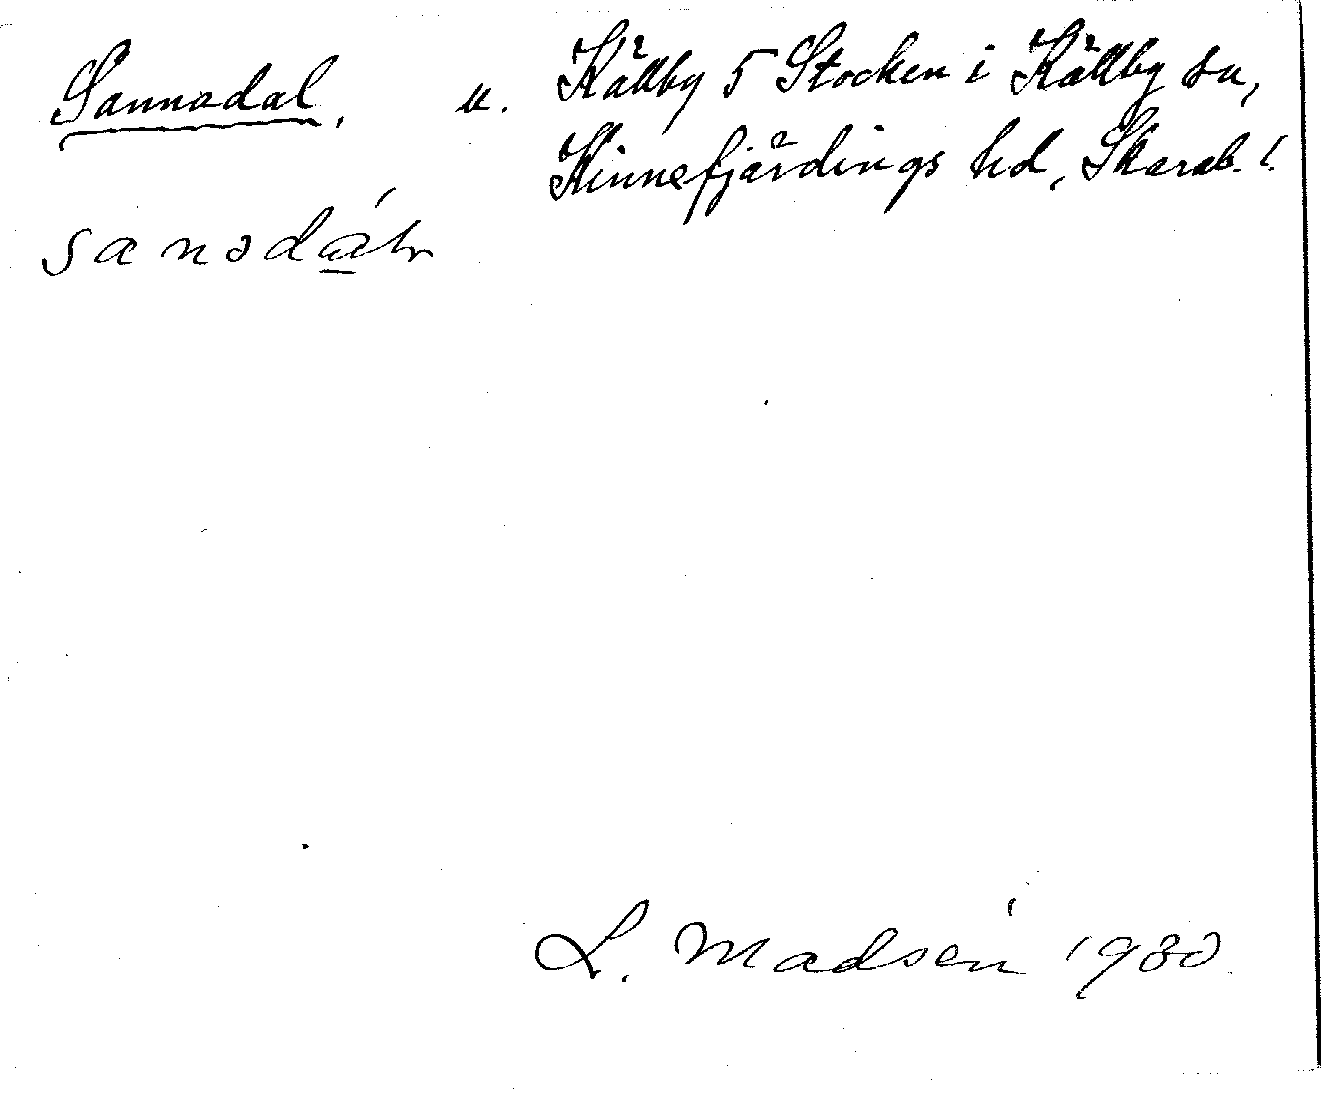 Sannadal, u. Källby 5 Stocken i Källby sn,
Kinnefjärdings hd, Skarab. l.
L. Madsén 1930